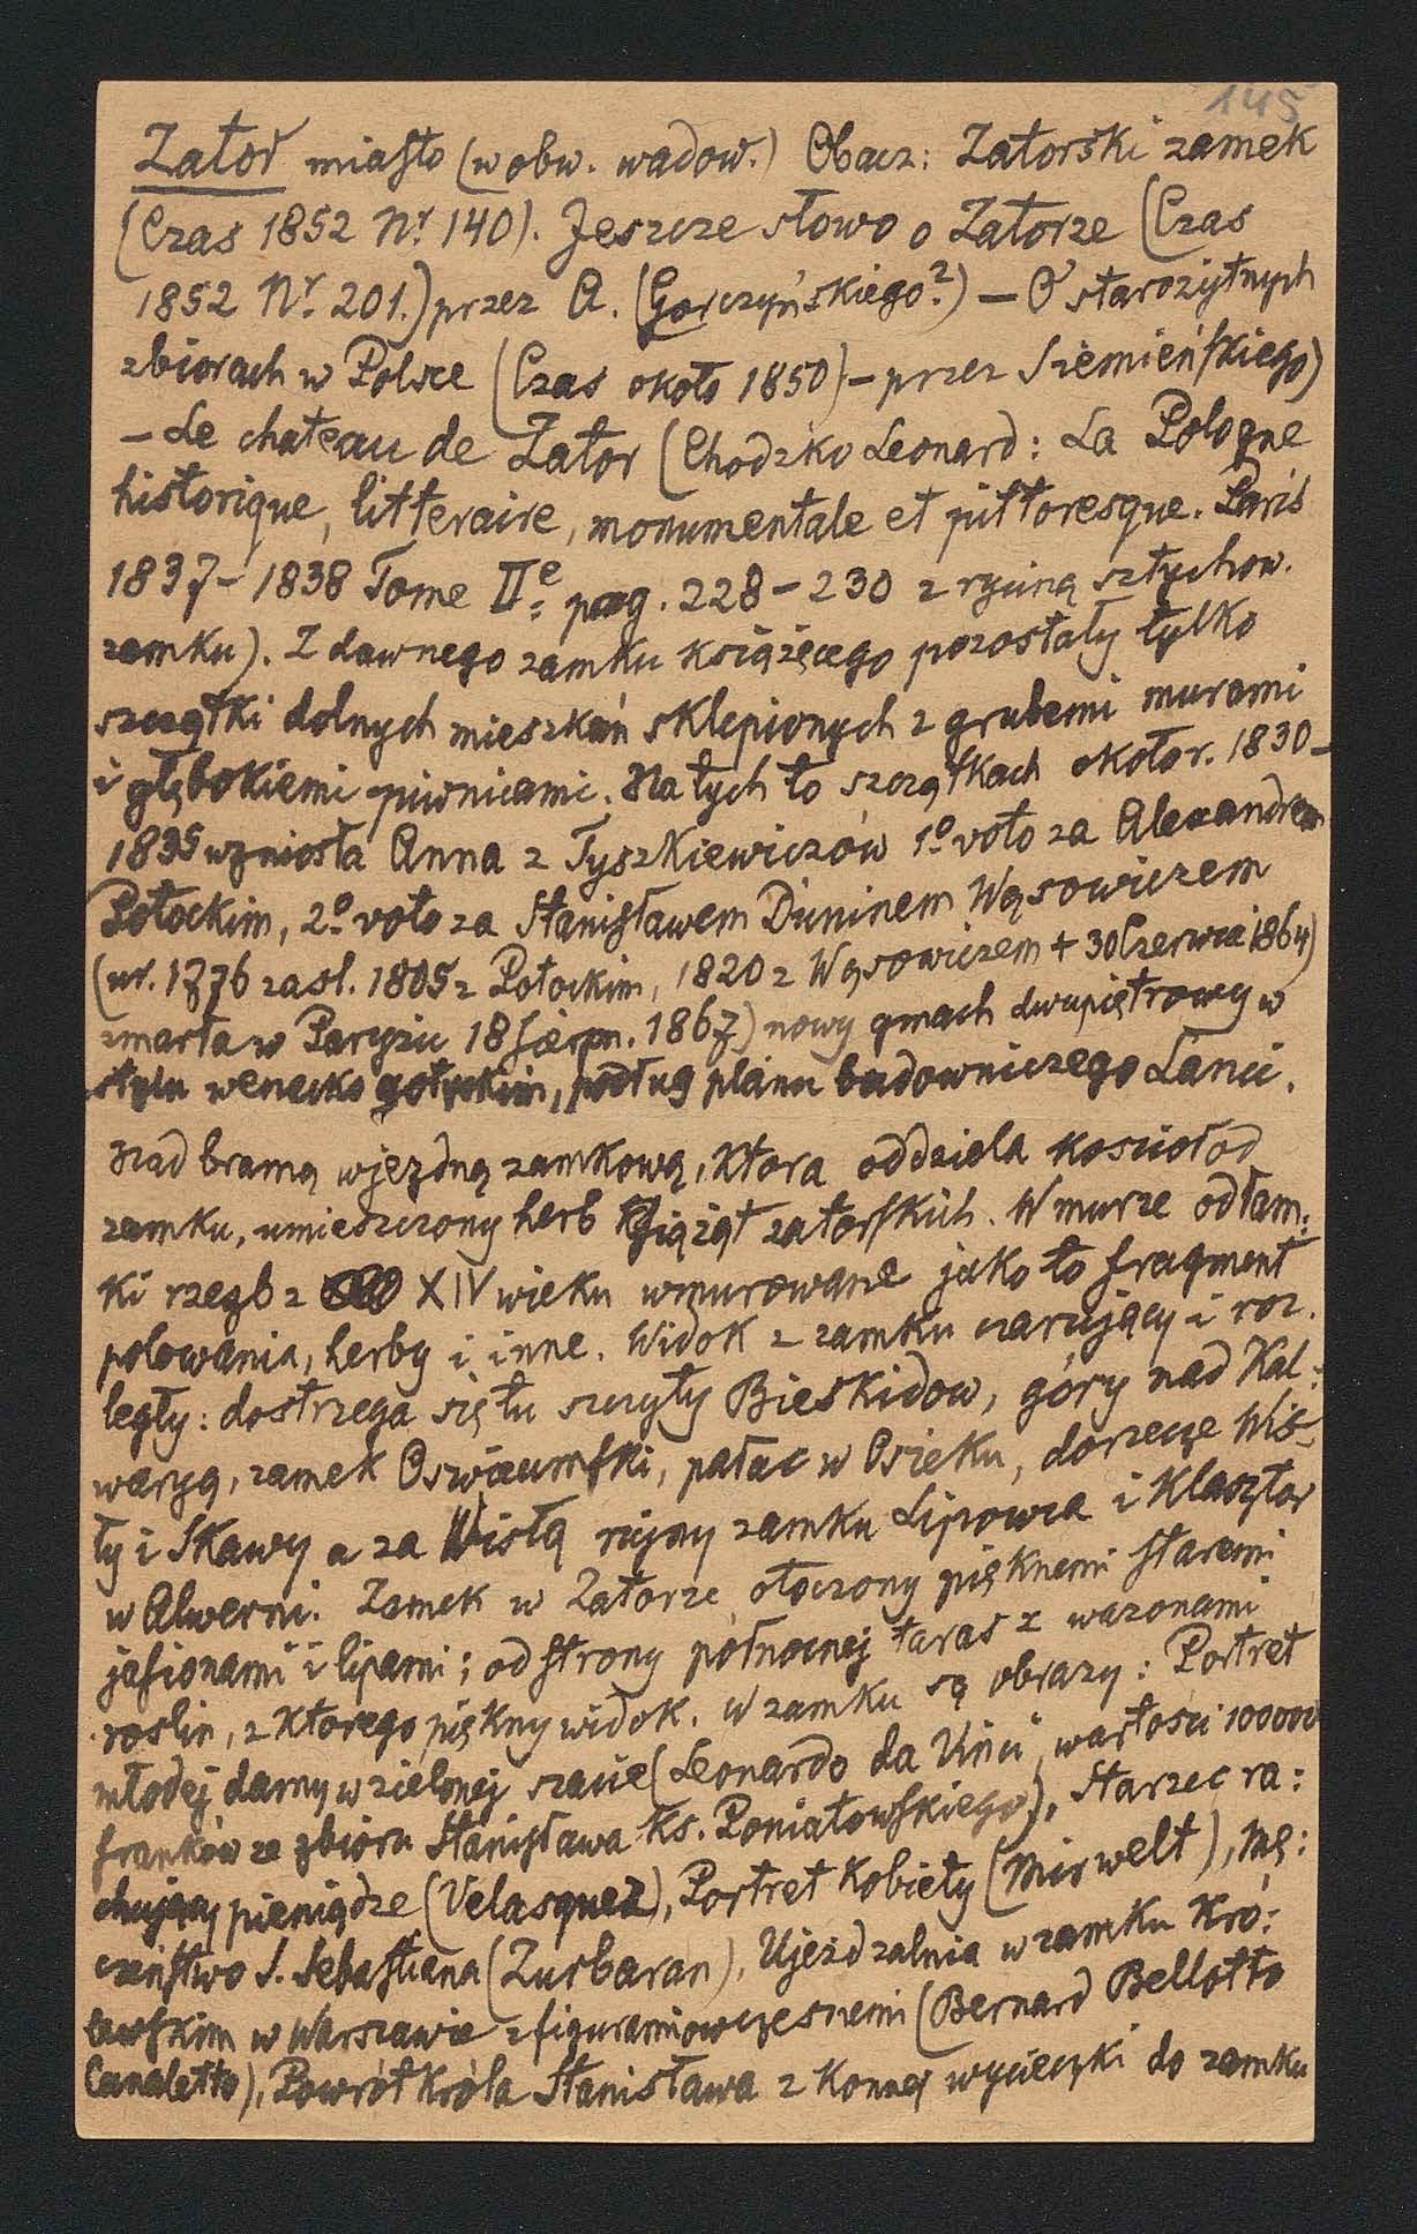 145
Zator miasto (w obw. wadow.) Obacz: Zatorski zamek
(Czas 1852 Nr. 140). Jeszcze słowo o Zatorze (Czas
1852 Nr. 201.) przez A. (Gorczyńskiego?) — O starożytnych
zbiorach w Polsce (Czas około 1850) - przez Siemieńskiego)
- Le chateau de Zator (Chodzko Leonard: La Pologne
historique, litteraire, monumentale et pittoresque. Paris
1837 - 1838 Tome IIe: pag. 228 - 230 z ryciną sztychow.
zamku). Z dawnego zamku książęcego pozostały tylko
szczątki dolnych mieszkań sklepionych z grubemi murami
i głębokiemi piwnicami. Na tych to szczątkach około r. 1830-
1835 wzniosła Anna z Tyszkiewiczów 1o voto za Alexandrem
Potockim, 2o voto za Stanisławem Duninem Wąsowiczem
(ur. 1776 zasl. 1805 z Potockim, 1820 z Wąsowiczem + 30 Czerwca 1864)
zmarła w Paryżu 18 Sierpn. 1867) nowy gmach dwupiętrowy w
stylu wenecko gotyckim, podług planu budowniczego Lanci.
Nad bramą wjezdną zamkową, ktora oddziela kosciół od
zamku, umieszczony herb Książąt zatorskich. W murze odłam:
ki rzezb z XIV wieku wmurowane jako to fragment
polowania, herby i inne. Widok z zamku czarujący i roz.
legły: dostrzega się tu szczyty Bieskidow, góry nad Kal:
waryą, zamek Oswiecimski, pałac w Osieku, dorzecze Wis-
ły i Skawy a za Wisłą rujny zamku Lipowca i klasztor
w Alwerni. Zamek w Zatorze otoczony pięknemi staremi
jasionami i lipami; od strony połnocnej taras z wazonami
roslin, z ktorego piękny widok. W zamku są obrazy: Portret
młodej damy w zielonej szacie (Leonardo da Vinci wartosci 100000
franków ze zbioru Stanisława Ks. Poniatowskiego), Starzec ra:
chujący pieniądze (Velasquez), Portret kobiety (Mirwelt), Mę:
czeństwo S. Sebastiana (Zurbaran), Ujeżdzalnia w zamku Kró:
lewskim w Warszawie z figurami owczesnemi (Bernard Bellotto
Canaletto), Powrót króla Stanisława z konnej wycieczki do zamku